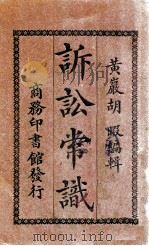 黃巖胡暇編輯
訴訟常識
商務印書館發行